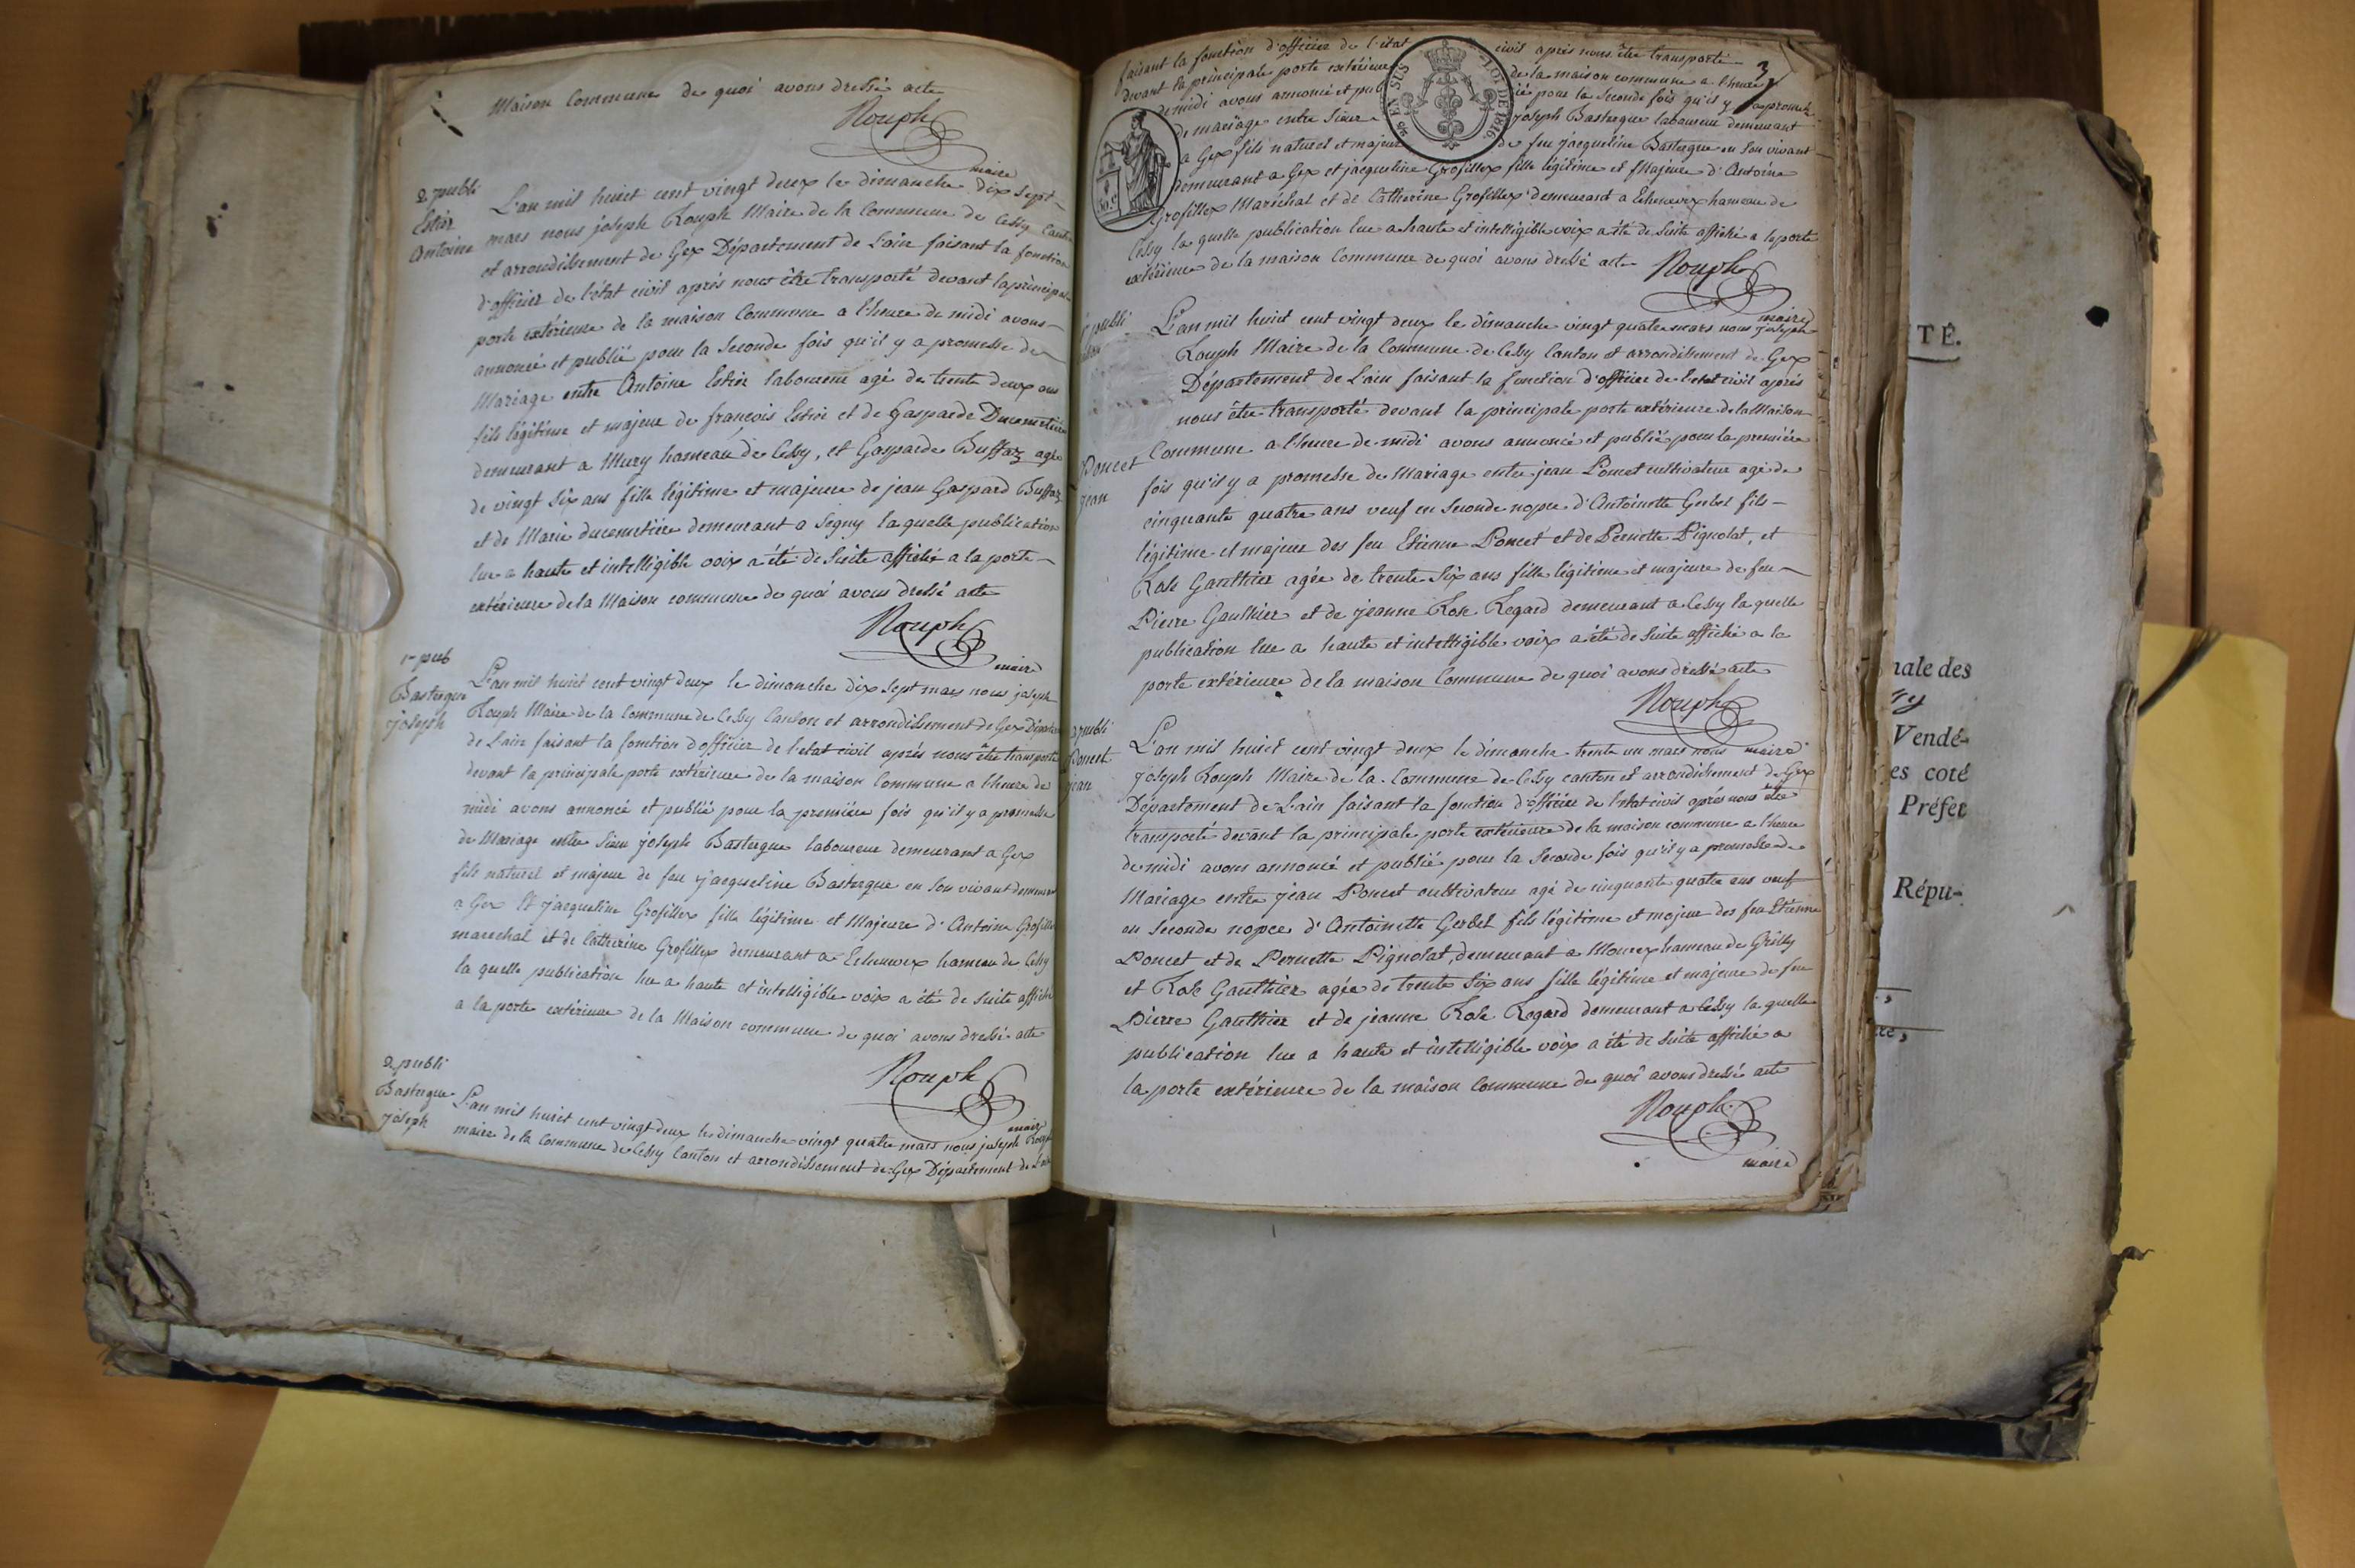 Maison Commune de quoi avons dressé acte
Rouph
maire
2 publi
Estier
Antoine
L'an mil huict cent vingt deux le dimanche dix sept
mars nous joseph Rouph Maire de la Commune de Cessy Canton
et arrondissement de Gex Département de L'ain faisant la fonction
d'officier de l'état civil aprés nous être transporté devant la principale
porte extérieure de la maison Commune a l'heure de midi avons
annoncé et publié pour la seconde fois qu'il y a promesse de
Mariage entre Antoine Estier laboureur agé de trente deux ans
fils légitime et majeur de françois Estier et de Gasparde Ducemetiére
demeurant a Mury hameau de Cessy, et Gasparde Buffaz agée
de vingt six ans fille légitime et majeure de jean Gaspard Buffaz
et de Marie ducemetiére demeurant a Segny la quelle publication
lue a haute et intelligible voix a été de suite affiché a la porte
extérieure de la Maison commune de quoi avons dressé acte
Rouph
maire
1re pub
Bastergue
joseph
L'an mil huict cent vingt deux le dimanche dix sept mars nous joseph
Rouph Maire de la Commune de Cessy Canton et arrondissement de Gex Départemen
de L'ain faisant la fonction d'officier de l'etat civil aprés nous être transporté
devant la principale porte extérieure de la maison Commune a l'heure de
midi avons annoncé et publié pour la premiére fois qu'il y a promesse
de Mariage entre sieur joseph Bastergue laboureur demeurant a Gex
fils naturel et majeur de feu jacqueline Bastergue en son vivant demeurant
a Gex Et jacqueline Grosillex fille légitime et Majeure d'Antoine Grosillex
marechal et de Catherine Grosillex demeurant a Echenevex hameau de Cessy
la quelle publication lue a haute et intelligible voix a été de suite affiché
a la porte extérieure de la Maison commune de quoi avons dressé acte
Rouph
maire
2 publi
Bastergue
joseph
L'an mil huict cent vingt deux le dimanche vingt quatre mars nous joseph Rouph
maire de la Commune de Cessy Canton et arrondissement de Gex Département de L'ain
3
faisant la fonction d'officier de l'état civil aprés nous être transporté
devant la principale porte extérieure de la maison commune a l'heure
de midi avons annoncé et publié pour la seconde fois qu'il y a promesse
de mariage entre sieur joseph Bastergue laboureur demeurant
a Gex fils naturel et majeur de feu jacqueline Bastergue en son vivant
demeurant a Gex et jacqueline Grosillex fille légitime et Majeure d'Antoine
Grosillex Maréchal et de Catherine Grosillex demeurant a Echenevex hameau de
Cessy la quelle publication lue a haute et intelligible voix a été de suite affiché a la porte
extérieure de la maison Commune de quoi avons dressé acte
Rouph
maire
EN SUS
LOI DE 1816.
publi
Poncet
jean
L'an mil huict cent vingt deux le dimanche vingt quatre mars nous joseph
Rouph Maire de la Commune de Cessy Canton et arrondissement de Gex
Département de L'ain faisant la fonction d'officier de l'etat civil aprés
nous être transporté devant la principale porte extérieure de la Maison
Commune a l'heure de midi avons annoncé et publié pour la premiére
fois qu'il y a promesse de Mariage entre jean Poncet cultivateur agé de
cinquante quatre ans veuf en seconde nopce d'Antoinette Gerbel fils
légitime et majeur des feu Etienne Poncet et de Pernette Pignolat, et
Rose Gauthier agée de trente six ans fille légitime et majeure de feu
Pierre Gauthier et de jeanne Rose Regard demeurant a Cessy la quelle
publication lue a haute et intelligible voix a été de suite affiché a la
porte extérieure de la maison Commune de quoi avons dressé acte
Rouph
maire
2 publi
Poncet
jean
L'an mil huict cent vingt deux le dimanche trente un mars nous
joseph Rouph Maire de la Commune de Cessy canton et arrondissement de Gex
Département de L'ain faisant la fonction d'officier de l'etat civil aprés nous être
transporté devant la principale porte extérieure de la maison commune a l'heure
de midi avons annoncé et publié pour la seconde fois qu'il y a promesse de
Mariage entre jean Poncet cultivateur agé de cinquante quatre ans veuf
en seconde nopce d'Antoinette Gerbel fils légitime et majeur des feu Etienne
Poncet et de Pernette Pignolat, demeurant a Mourex hameau de Grilly
et Rose Gauthier agée de trente six ans fille légitime et majeure de feu
Pierre Gauthier et de jeanne Rose Regard demeurant a Cessy la quelle
publication lue a haute et intelligible voix a été de suite affiché a
la porte extérieure de la maison Commune de quoi avons dressé acte
Rouph
maire
TÉ.
nale des
Vendé-
es coté
Préfet
Répu-